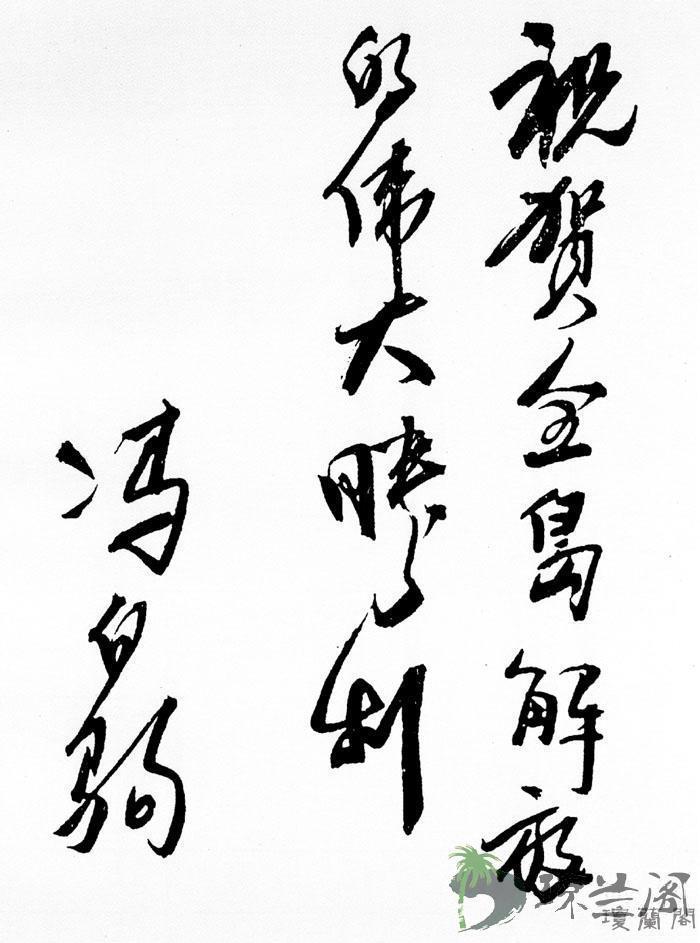 祝贺全岛解放
的伟大勝利
冯白驹
琼兰阁
瓊蘭閣